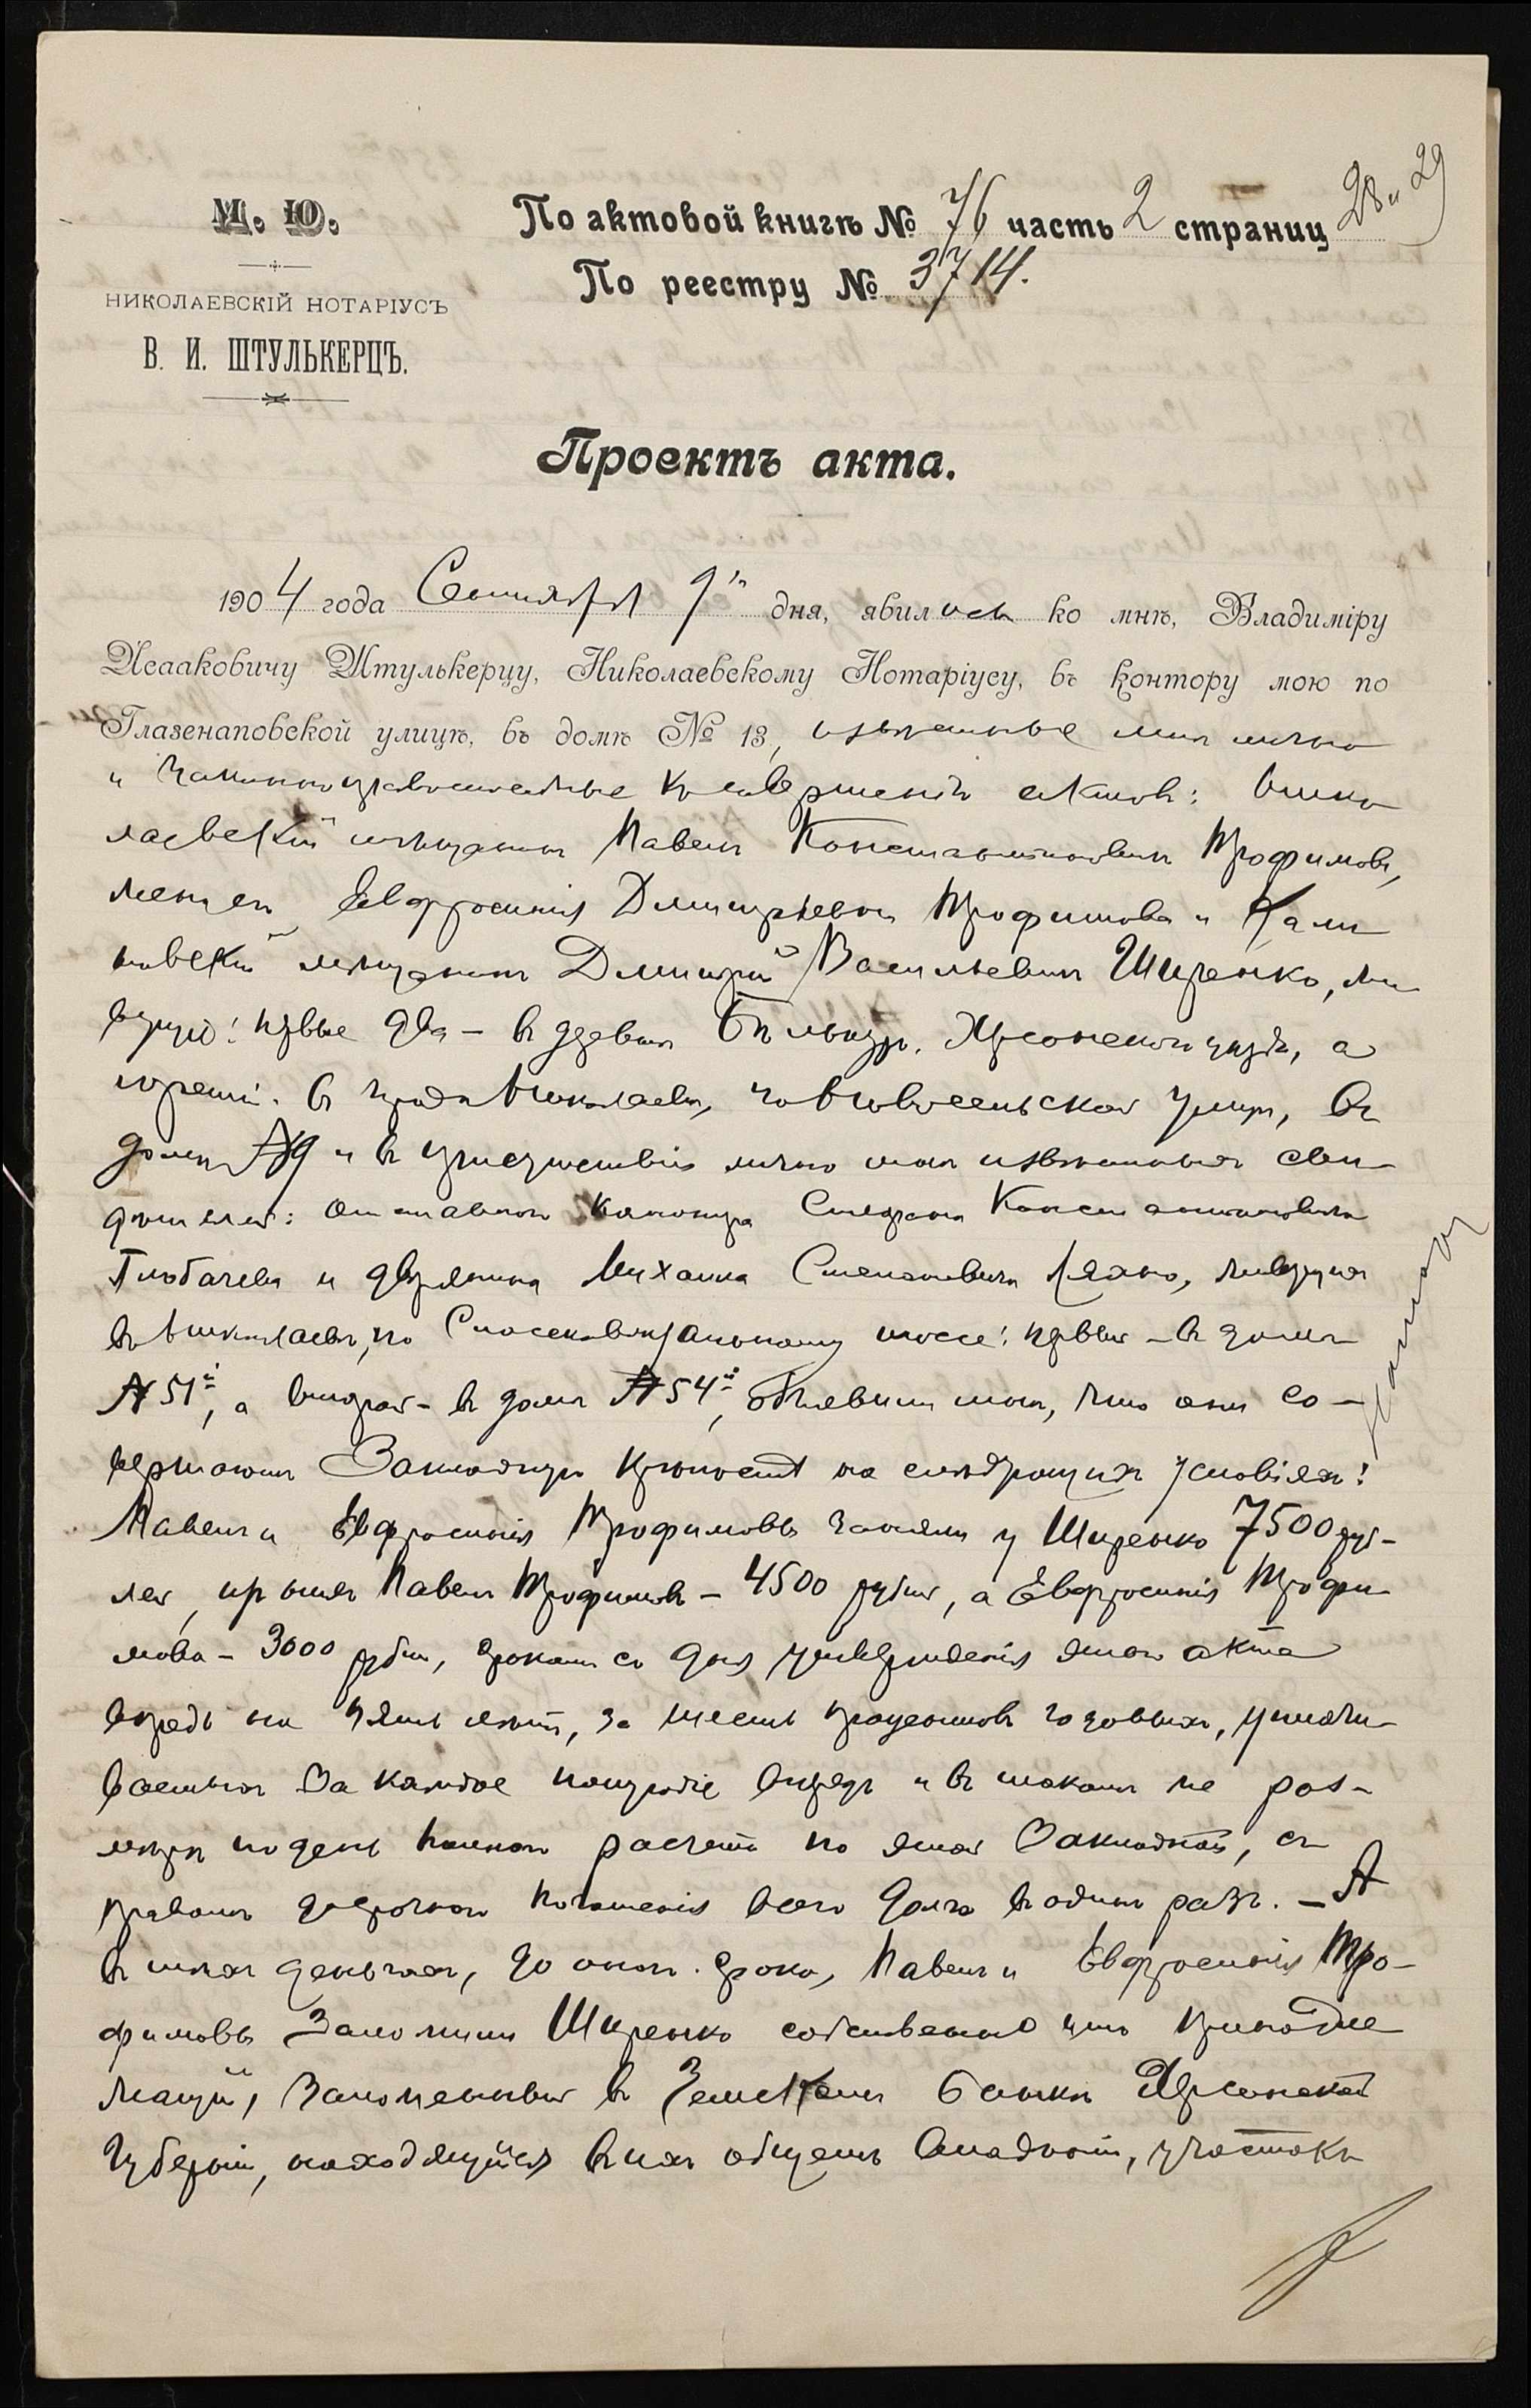 М. Ю.
НИКОЛАЕВСКІЙ НОТАРІУСЪ
В. И. ШТУЛЬКЕРЦЪ.
По актовой книгѣ № 76 часть 2 страниц 28 и 29
По реестру № 3714.
Проектъ акта.
1904 года Сентября дня, явились ко мнѣ, Владиміру
Исааковичу Штулькерцу, Николаевскому Нотаріусу, въ контору мою по
Глазенаповской улицѣ, въ домѣ № 13, извѣстные мнѣ лично
и законно правоспособные къ совершенію актовъ:
мѣщанинъ Павелъ Константиновичъ Трофимовъ,
Евфросинія Дмитріевна Трофимова и
мѣщанинъ Дмитрій Васильевичъ Ширенко, жи-
вущіе: первые два - въ Херсонскаго уѣзда, а
третій - въ городѣ Николаевѣ, по улицѣ, въ
домѣ № 9 и въ присутствіи лично мнѣ извѣстныхъ сви-
дѣтелей: отставного Константиновича
и дворянина Михаила Степановича Ляхно, живущихъ
въ Николаевѣ, по шоссе: первый - въ домѣ
№ 51й, а второй - въ домѣ № 54й, объявили мнѣ, что они со-
вершаютъ Закладную крѣпость на слѣдующихъ условіяхъ:
Павелъ и Евфросинія Трофимовы заняли у Ширенко 7500 руб-
лей, Павелъ Трофимовъ - 4500 рублей, а Евфросинія Трофи-
мова - 3000 рублей, срокомъ со дня утвержденія этого акта
впредь на пять лѣтъ, за шесть процентовъ годовыхъ, уплачи-
ваемыхъ за каждое полугодіе впередъ и въ такомъ же раз-
мѣрѣ по день полнаго расчета по этой Закладной, съ
правомъ досрочнаго погашенія всего долга въ одинъ разъ. - А
въ тѣхъ деньгахъ, до онаго срока, Павелъ и Евфросинія Тро-
фимовы заложили Ширенко собственный имъ принадле-
жащій, заложенный въ Земскомъ банкѣ Херсонской
губерніи, находящійся въ ихъ общемъ владѣніи, участокъ